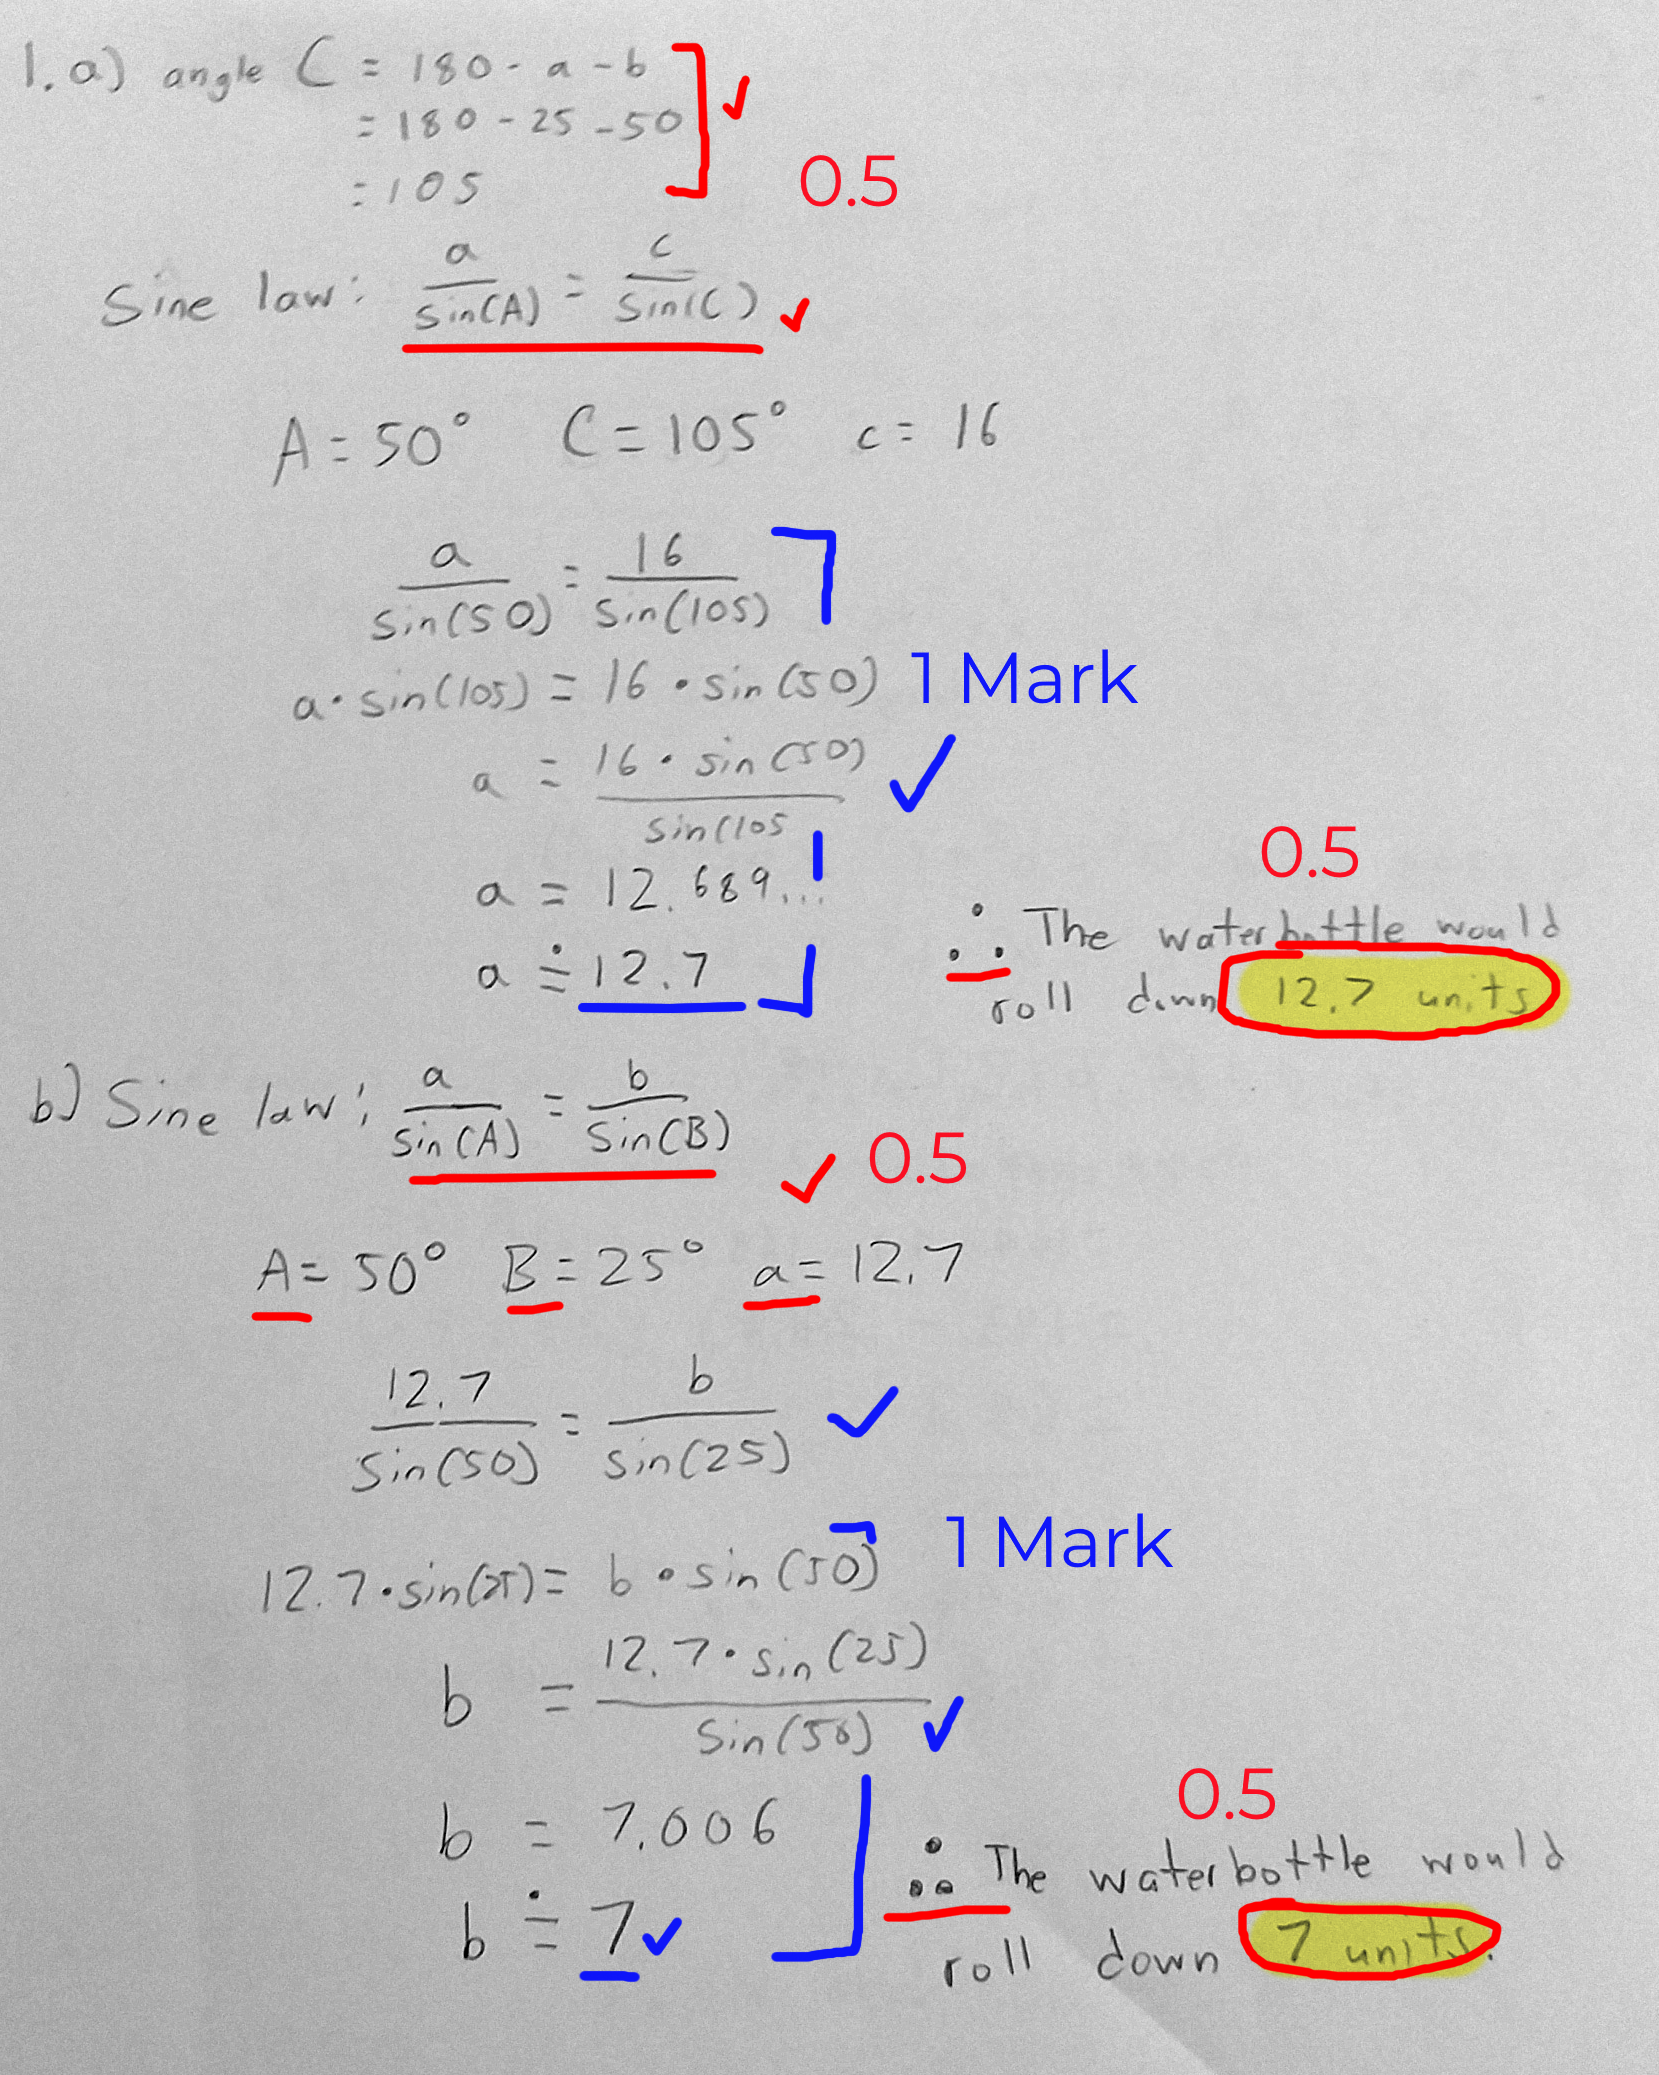 1. a) angle C = 180 - a - b
= 180 - 25 - 50
= 105
0.5
Sine law: a/sin(A) = c/sin(C)
A = 50° C = 105° c = 16
a/sin(50) = 16/sin(105)
a · sin(105) = 16 · sin(50)
1 Mark
a = 16 · sin(50)/sin(105
a = 12.689...
a ≐ 12.7
0.5
∴ The waterbottle would
roll down 12.7 units
b) Sine law: a/sin(A) = b/sin(B)
0.5
A = 50° B = 25° a = 12.7
12.7/sin(50) = b/sin(25)
1 Mark
12.7 · sin(25) = b · sin(50)
b = 12.7 · sin(25)/sin(50)
b = 7.006
b ≐ 7
0.5
∴ The waterbottle would
roll down 7 units.